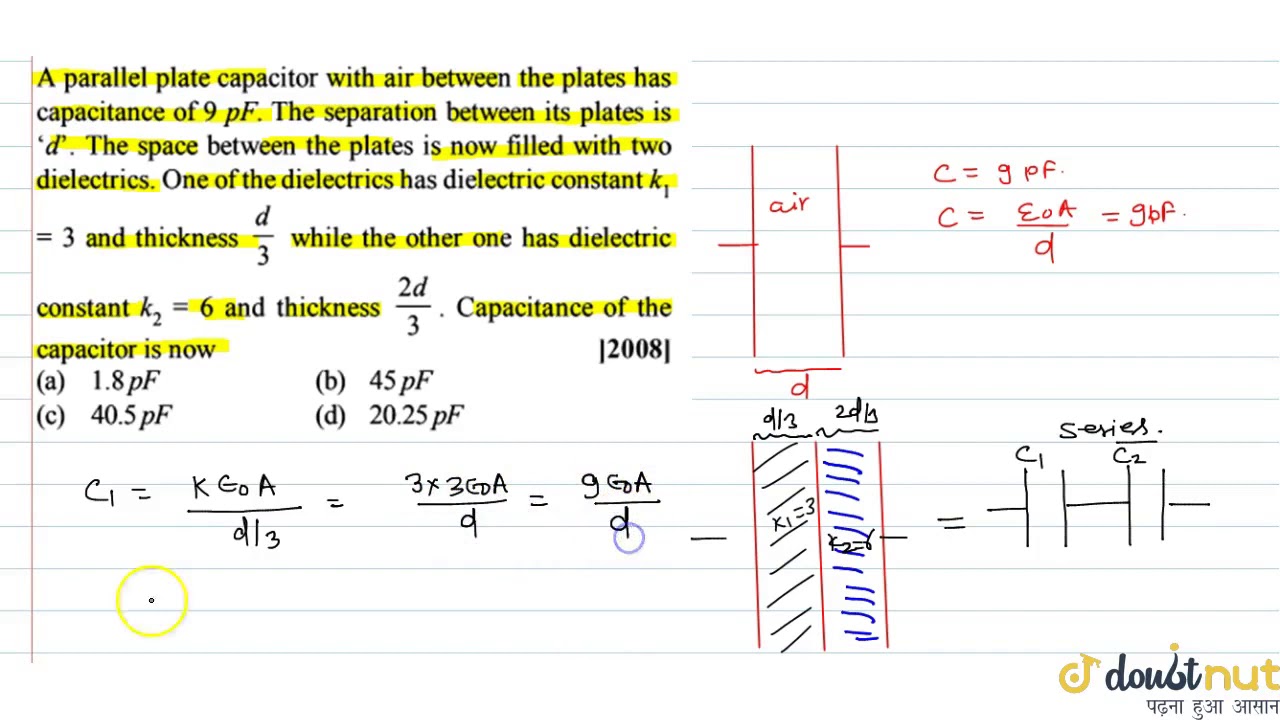 A parallel plate capacitor with air between the plates has
capacitance of 9 pF. The separation between its plates is
‘d’. The space between the plates is now filled with two
dielectrics. One of the dielectrics has dielectric constant k₁
= 3 and thickness d/3 while the other one has dielectric
constant k₂ = 6 and thickness 2d/3 . Capacitance of the
capacitor is now |2008|
(a) 1.8 pF (b) 45 pF
(c) 40.5 pF (d) 20.25 pF
air
d
C = 9 pF.
C = ε₀A/d = 9pF.
d/3 2d/3
K₁=3
K₂=6
=
series.
C₁ C₂
C₁ = K ε₀ A / d/3 = 3×3ε₀A / d = 9ε₀A / d
doubtnut
पढ़ना हुआ आसान